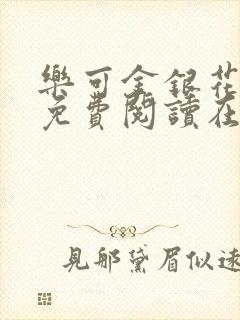 樂可金銀花
免費閱讀在
見那黛眉似遠